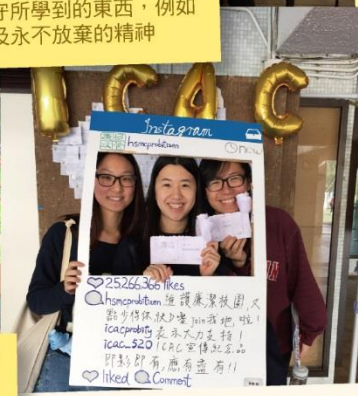 守所學到的東西，例如
及永不放棄的精神
ICAC
Instagram
hsmcprobiteam
now
25,266,366 likes
hsmcprobiteam 維護廉潔校園，又
點少得你，快D嚟join我哋啦！
icacprobity 表示大力支持！
icac_520 ICAC宣傳紀念品
即影即有，應有盡有!!
liked Comment